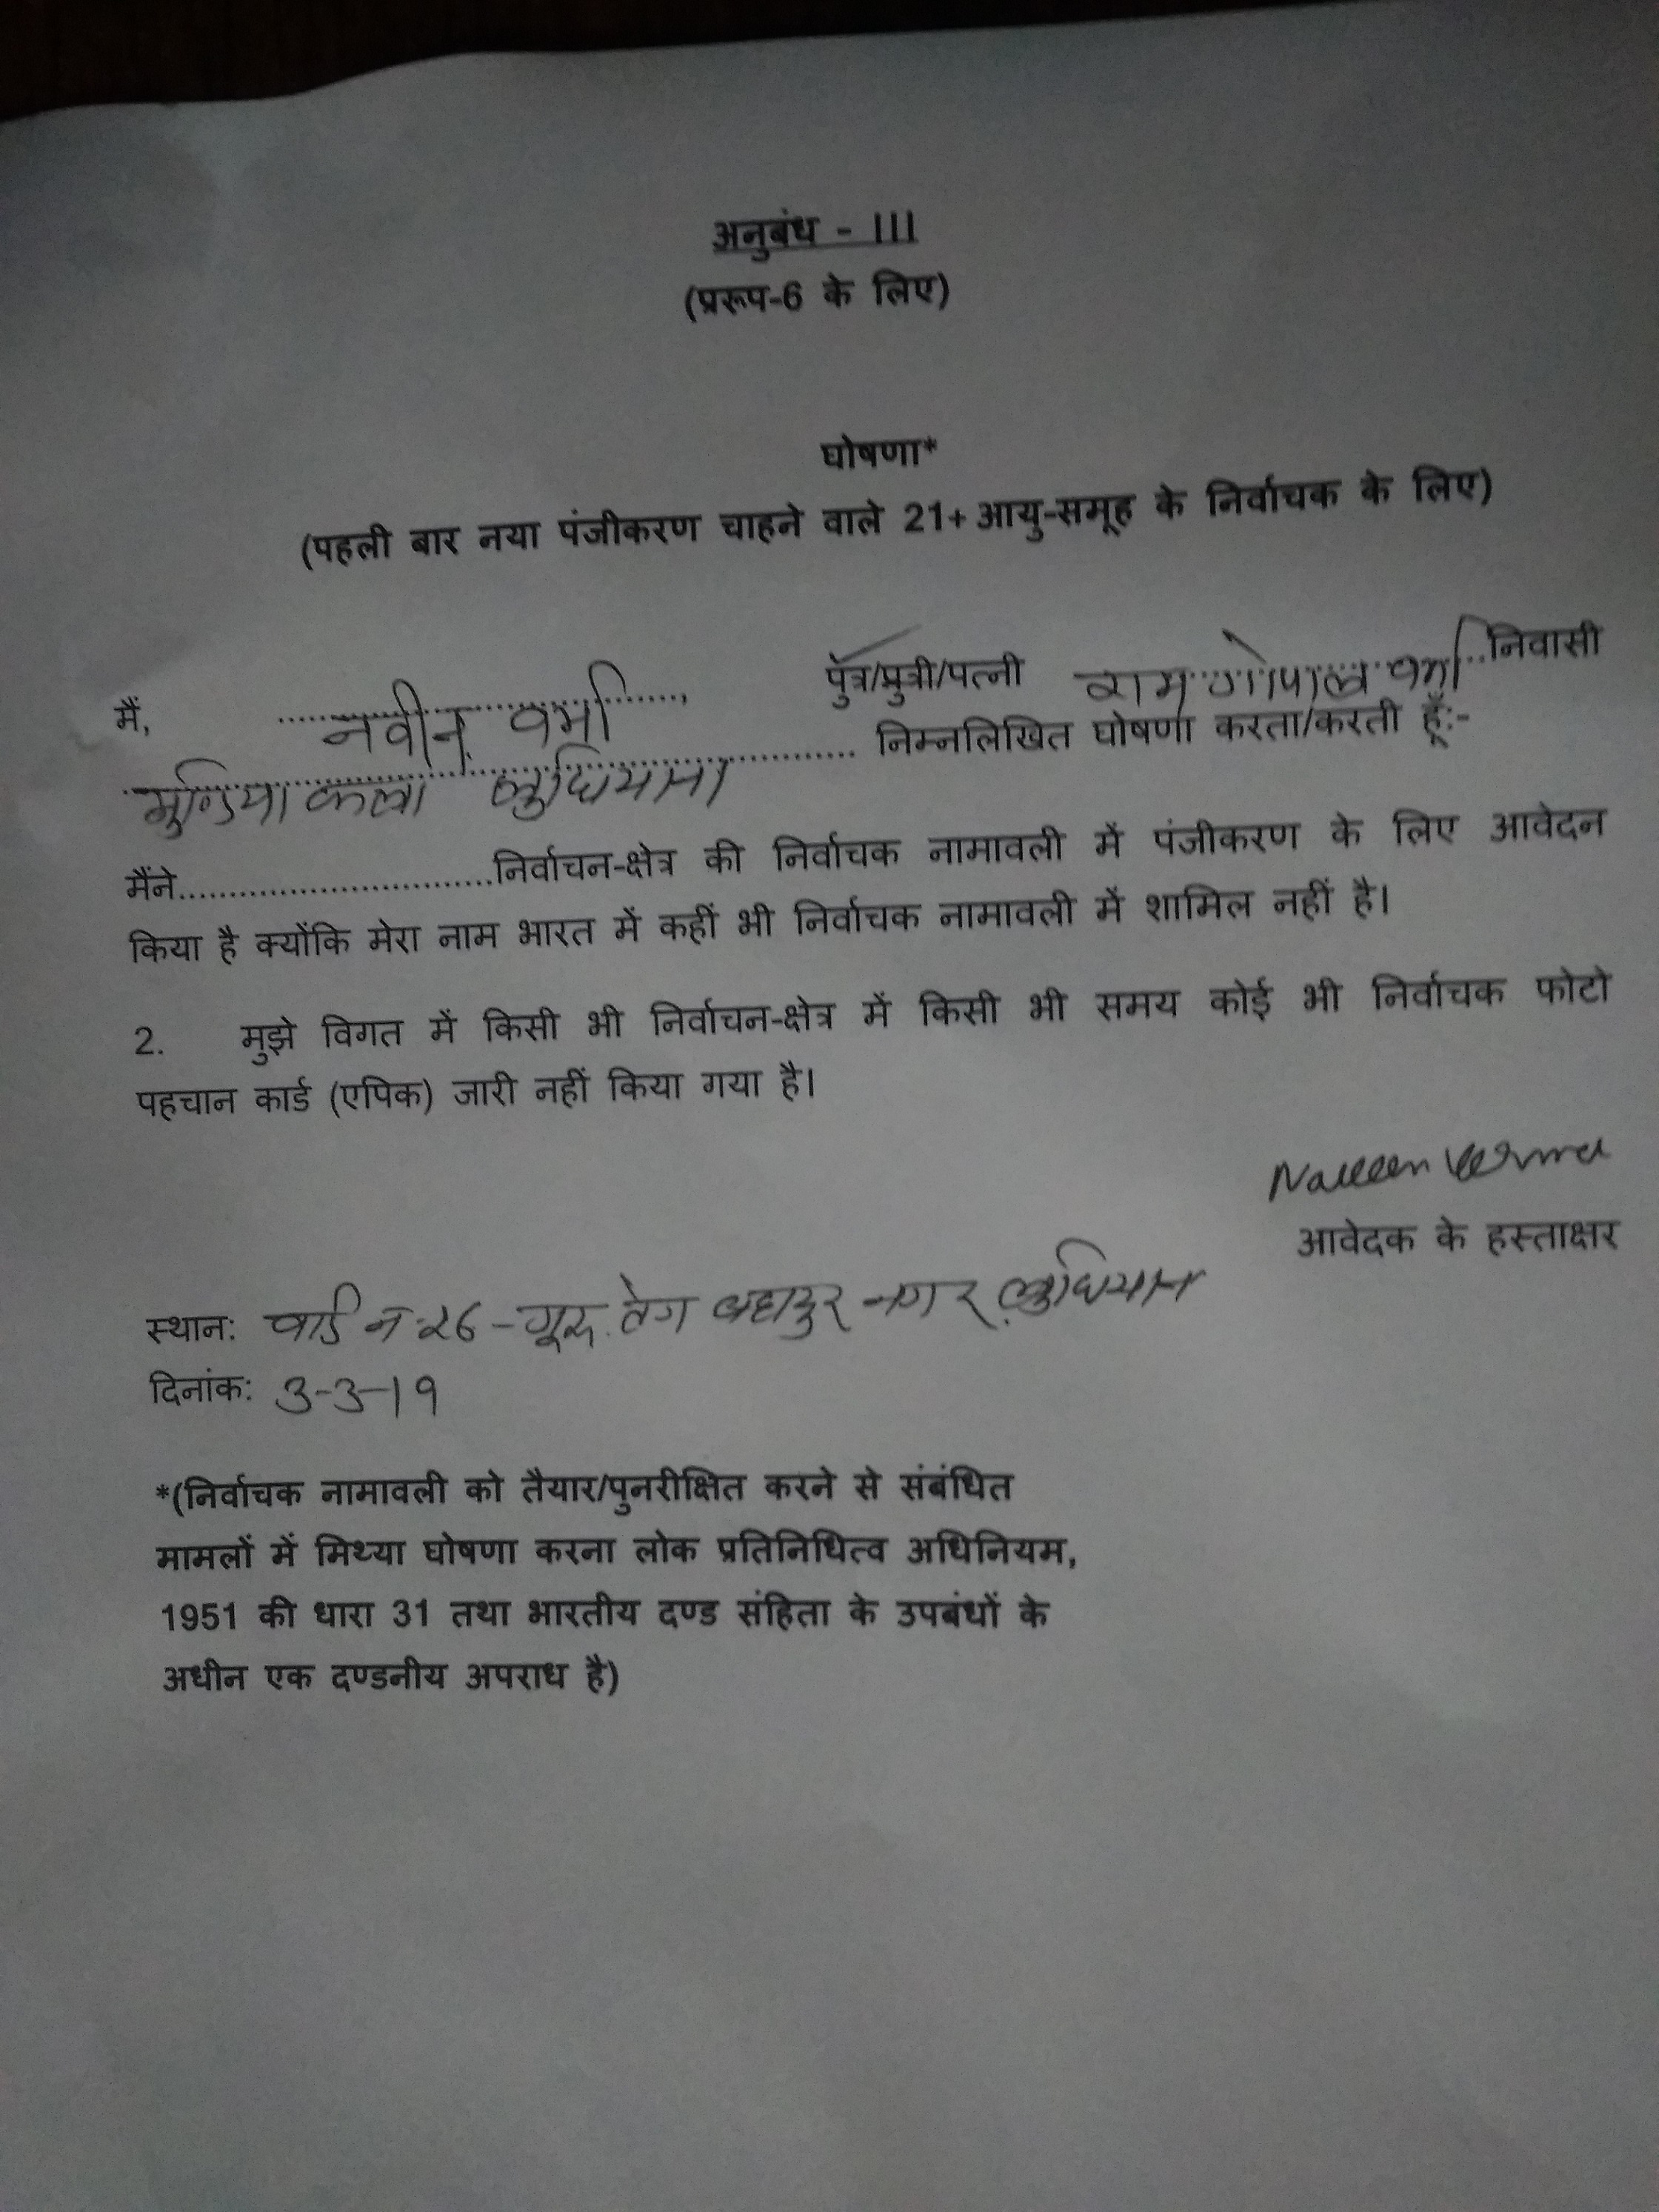 अनुबंध - III
(प्ररूप-6 के लिए)
घोषणा*
(पहली बार नया पंजीकरण चाहने वाले 21+ आयु-समूह के निर्वाचक के लिए)
मैं, नवीन वर्मा पुत्र/पुत्री/पत्नी राम गोपाल वर्मा निवासी
मुण्डिया कला लुधियाना निम्नलिखित घोषणा करता/करती हूँ:-
मैंने..............................निर्वाचन-क्षेत्र की निर्वाचक नामावली में पंजीकरण के लिए आवेदन
किया है क्योंकि मेरा नाम भारत में कहीं भी निर्वाचक नामावली में शामिल नहीं है।
2. मुझे विगत में किसी भी निर्वाचन-क्षेत्र में किसी भी समय कोई भी निर्वाचक फोटो
पहचान कार्ड (एपिक) जारी नहीं किया गया है।
Naveen Verma
आवेदक के हस्ताक्षर
स्थान: वार्ड न. 26 - गुरू तेग बहादुर नगर, लुधियाना
दिनांक: 3-3-19
*(निर्वाचक नामावली को तैयार/पुनरीक्षित करने से संबंधित
मामलों में मिथ्या घोषणा करना लोक प्रतिनिधित्व अधिनियम,
1951 की धारा 31 तथा भारतीय दण्ड संहिता के उपबंधों के
अधीन एक दण्डनीय अपराध है)